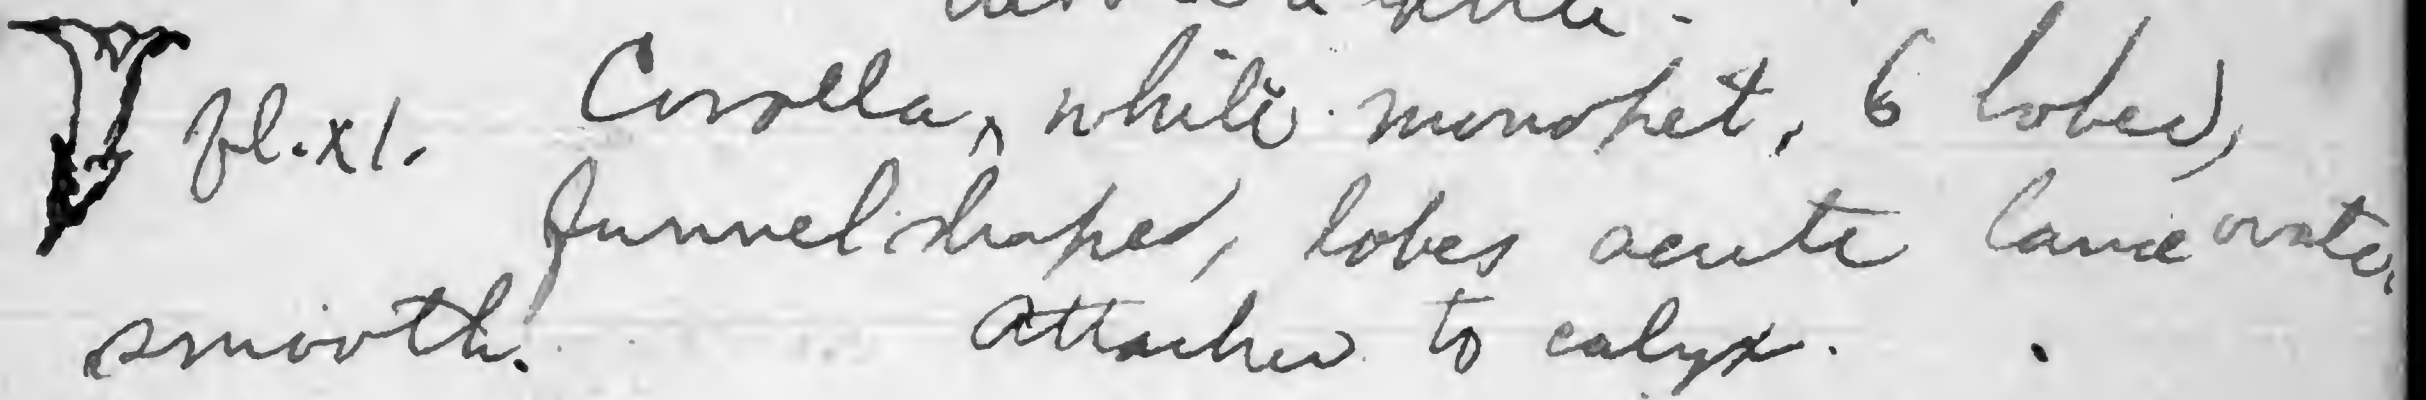 fl. x 1. Corolla, white monopet, 6 lobed,
funnel shaped, lobes acute lance ovate,
smooth. attached to calyx.